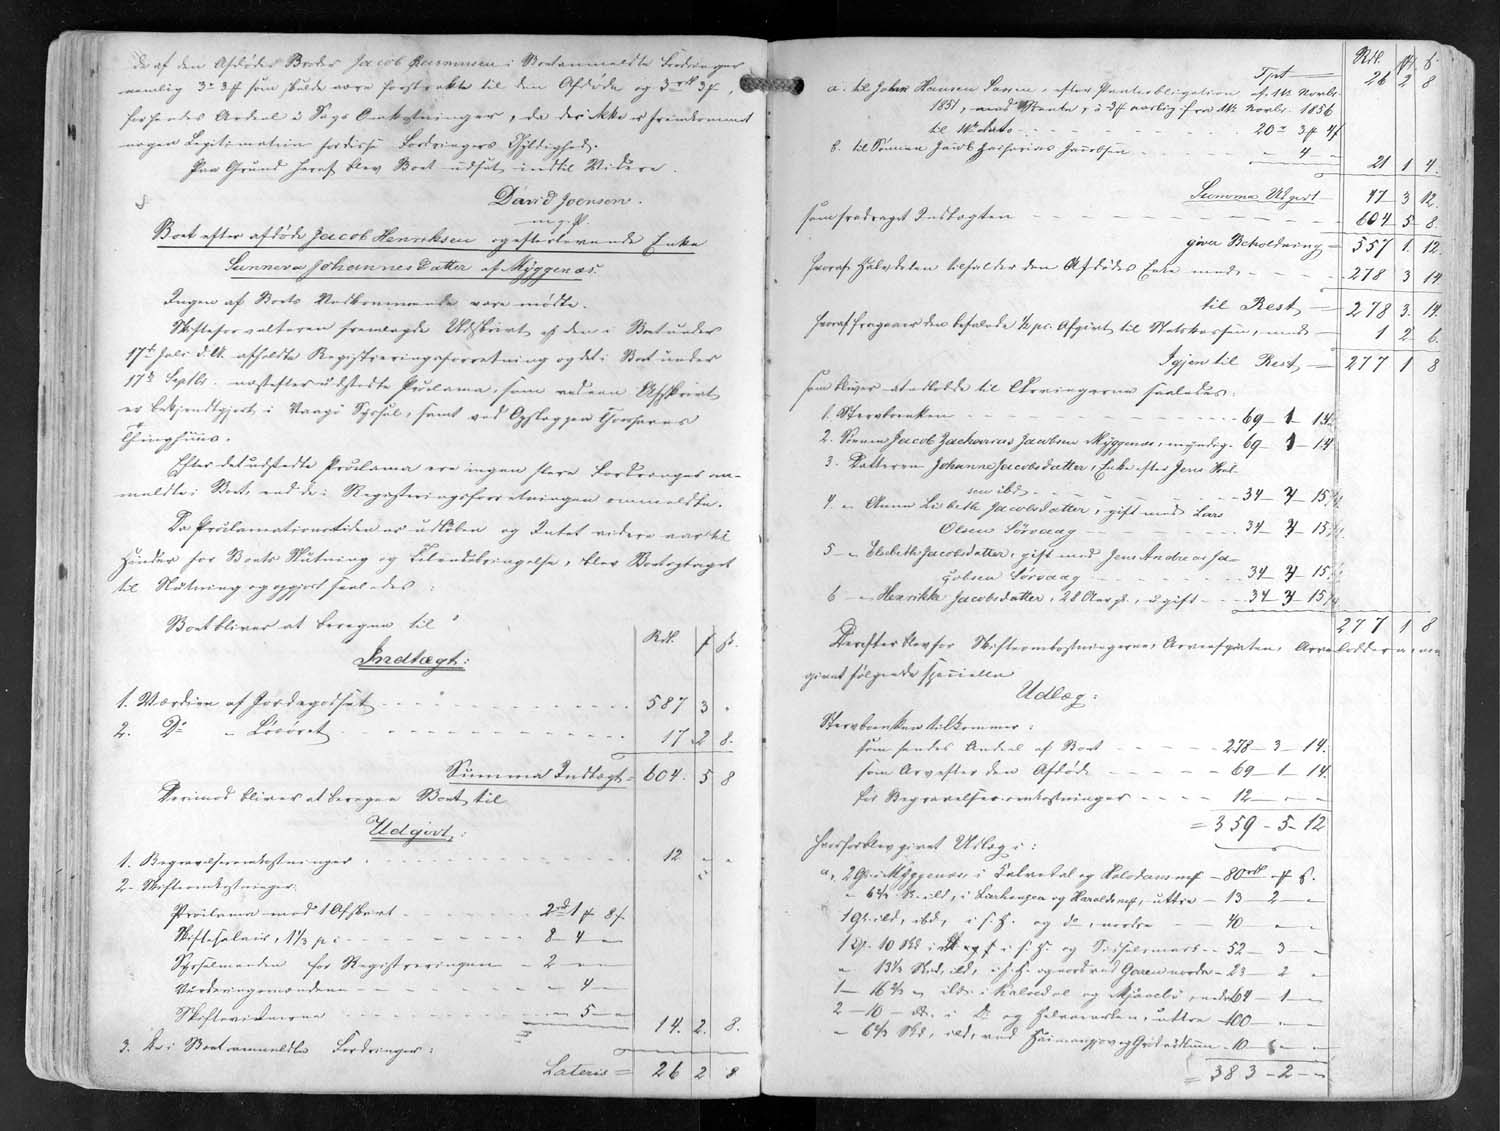 de af den Afdødes Broder Jacob Rasmussen i Boet anmeldte Fordringer
nemlig 3 d 3 f som skulde være forstrakte til den Afdøde og 3 rd 3 f,
hørendes Andeel i Sags Omkostninger, da der ikke er fremkommet
nogen Legitimation for disse Fordringers Gyldighed.
Paa Grund heraf blev Boet udsat indtil Videre.
David Joensen.
m. f. P.
Boet efter afdøde Jacob Henriksen og efterlevende Enke
Sunneva Johannesdatter af Myggenæs.
Ingen af Boets Vedkommende vare mødte.
Skifteforvalteren fremlagde Udskrift af den i Boet under
17de Juli d. A. afholdte Registreringsforretning og det i Boet under
17de Septbr. næstefter udstedte Proclama, som ved en Afskrivt
er bekjendtgjort i Vaagø Syssel, samt ved Opslag paa Thorshavns
Thinghuus.
Efter det udstedte Proclama ere ingen flere Fordringer an-
meldte i Boet, end de i Registreringsforretningen anmeldte.
Da Proclamationstiden er udløben og Intet videre var til
Hinder for Boets Slutning og Tilendebringelse, blev Boet optaget
til Slutning og opgjort saaledes:
Boet bliver at beregne til
Indtægt: Rdl. f ß.
1. Værdien af Jordegodset 587 3 "
2. Do " Løsøret 17 2 8.
Summa Indtægt = 604. 5 8
Derimod bliver at beregne Boet til
Udgivt:
1. Begravelsesomkostninger 12 " "
2. Skifteomkostninger:
Proclama med 1 Afskrivt 2 rd 1 f 8 ß.
Skiftesalair, 1 1/3 pc 8 - 4 -
Sysselmanden for Registreringen - 2 - -
Vurderingsmændene - 4 -
Skiftevidnerne " - 5 -
14. 2. 8.
3. De i Boet anmeldte Fordringer:
Lateris = 26 2 8
Rdl. f ß
Tpt 26 2 8
a. til Johan Hansen Søren, efter Pantobligation af 14 Novbr.
1851, med Rente, a 3 f aarlig fra 14 Novbr. 1856
til 14de dato 20 - 3 f 4 ß
b. til Sønnen Jacob Zacharias Jacobsen - 4 -
21 1 4.
Summa Udgivt 47 3 12.
som fradraget Indtægten 604 5 8.
giver Beholdning = 557 1. 12.
hvoraf Halvdelen tilfalder den Afdødes Enke med 278 3 14
til Rest = 278 3. 14.
hvoraf fragaaer den befalede 1/2 pc. Afgivt til Statskassen, med 1 2 6.
Igjen til Rest = 277 1 8
som bliver at udlodde til Arvingerne saaledes:
1. Stervboenken 69 - 1 - 14.
2. Sønnen Jacob Zacharias Jacobsen Myggenæs, myndig. 69 - 1 - 14
3. Datteren Johanne Jacobsdatter, Enke efter Jens Han-
sen ibd. 34 - 3 - 15
4. " Anna Lisbeth Jacobsdatter, gift med Lars
Olsen Sørvaag 34 - 3 - 15
5 " Elsbeth Jacobsdatter, gift med Jens Andreas Ja-
cobsen Sørvaag 34 - 3 - 15
6 " Henrikke Jacobsdatter, 28 Aar gl., ugift 34 - 3 - 15
277 1 8
Derefter blev for Skifteomkostningerne, Arveafgivten, Arvelodderne, m. m.
givet følgende specielle
Udlæg:
Stervboenken tilkommer:
som hendes Andeel af Boet 278 - 3 - 14.
som Arv efter den Afdøde 69 - 1 - 14.
for Begravelsesomkostninger 12 - " -
= 359 - 5 - 12
hvorfor blev givet Udlæg i:
a, 2 Gl. i Myggenæs i Kalvedal og - 80 rd " f ß.
" 6 2/3 Sk. ibd, i Larhenger og Haraldsmf, uttre - 13 - 2 -
1 Gl. ibd, ibd, i s. H. og do, nordre - 40 - " -
1 Gl. 10 Skd i s. H. og - 52 - 3 -
" 13 1/3 Skd, ibd, i s. H. og nord ved Garen nordre - 23 - 2 -
1 - 16 2/3 " ibd. i Kalvedal og 64 - 1 -
2 - 10 - do. i Do og Halvmarken, uttre - 100 - " -
" 6 2/3 Skd, ibd, ved - 10 - " -
= 383 - 2 - "